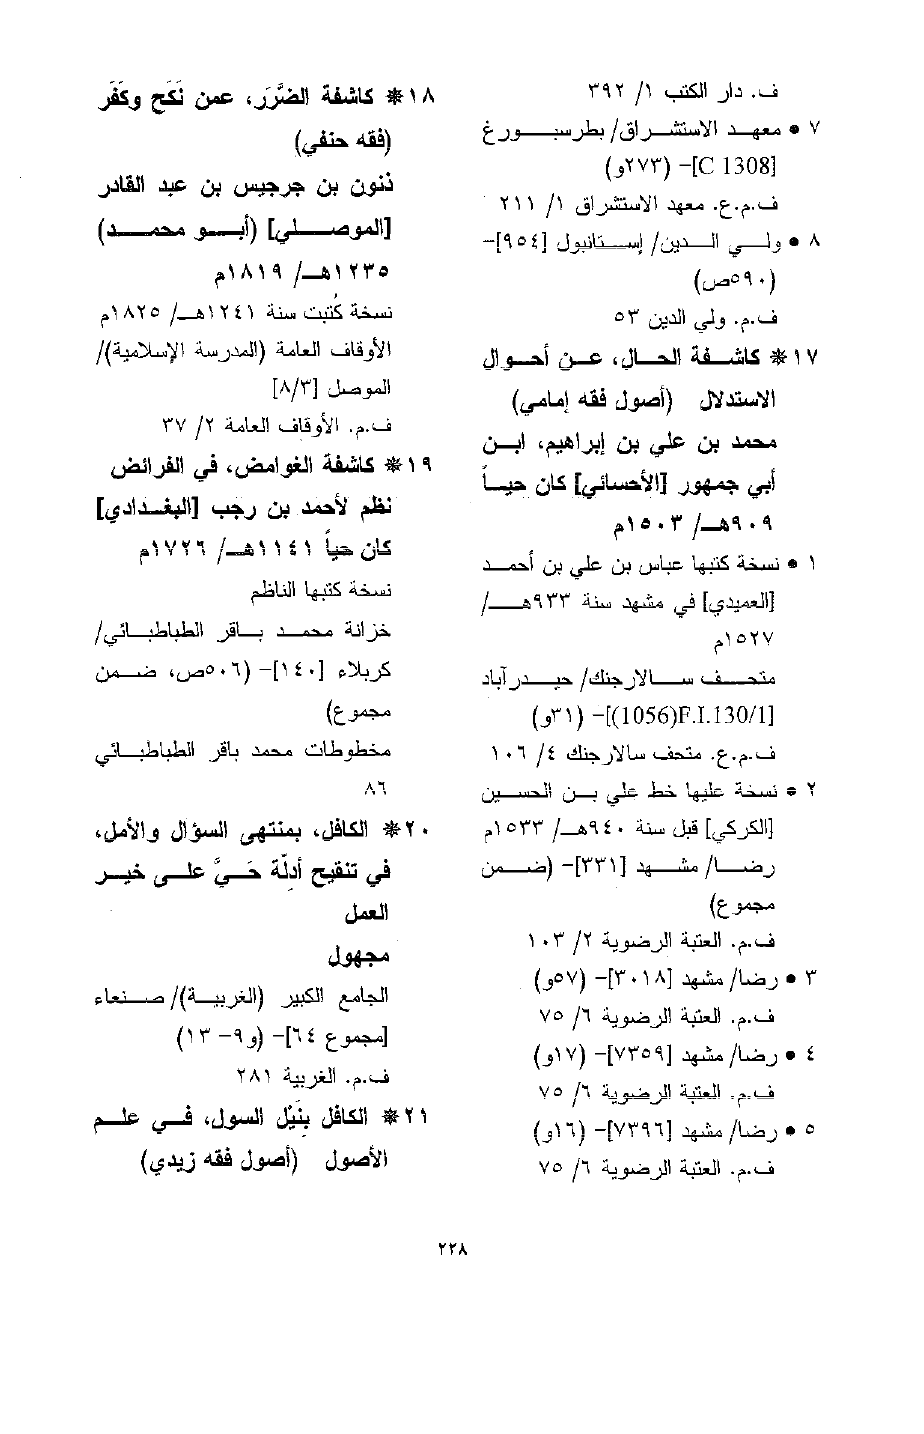 ف. دار الكتب ١/ ٣٩٢
٧ • معهد الاستشراق/ بطرسبورغ
[C 1308]- (٢٧٣و)
ف.م.ع. معهد الاستشراق ١/ ٢١١
٨ • ولي الدين/ إستانبول [٩٥٤]-
(٥٩٠ص)
ف.م. ولي الدين ٥٣
١٧* كاشفة الحال، عن أحوال
الاستدلال (أصول فقه إمامي)
محمد بن علي بن إبراهيم، ابن
أبي جمهور [الأحسائي] كان حياً
٩٠٩هـ/ ١٥٠٣م
١ • نسخة كتبها عباس بن علي بن أحمد
[العميدي] في مشهد سنة ٩٣٣هـ/
١٥٢٧م
متحف سالارجنك/ حيدرآباد
[F.I.130/1(1056)]- (٣١و)
ف.م.ع. متحف سالارجنك ٤/ ١٠٦
٢ * نسخة عليها خط علي بن الحسين
[الكركي] قبل سنة ٩٤٠هـ/ ١٥٣٣م
رضا/ مشهد [٣٣١]- (ضمن
مجموع)
ف.م. العتبة الرضوية ٢/ ١٠٣
٣ • رضا/ مشهد [٣٠١٨]- (٥٧و)
ف.م. العتبة الرضوية ٦/ ٧٥
٤ • رضا/ مشهد [٧٣٥٩]- (١٧و)
ف.م. العتبة الرضوية ٦/ ٧٥
٥ • رضا/ مشهد [٧٣٩٦]- (١٦و)
ف.م. العتبة الرضوية ٦/ ٧٥
١٨* كاشفة الضَّرَر، عمن نَكَح وكَفَر
(فقه حنفي)
ذنون بن جرجيس بن عبد القادر
[الموصلي] (أبو محمد)
١٢٣٥هـ/ ١٨١٩م
نسخة كُتبت سنة ١٢٤١هـ/ ١٨٢٥م
الأوقاف العامة (المدرسة الإسلامية)/
الموصل [٨/٣]
ف.م. الأوقاف العامة ٢/ ٣٧
١٩* كاشفة الغوامض، في الفرائض
نظم لأحمد بن رجب [البغدادي]
كان حياً ١١٤١هـ/ ١٧٢٦م
نسخة كتبها الناظم
خزانة محمد باقر الطباطبائي/
كربلاء [١٤٠]- (٥٠٦ص، ضمن
مجموع)
مخطوطات محمد باقر الطباطبائي
٨٦
٢٠* الكافل، بمنتهى السؤال والأمل،
في تنقيح أدلّة حَيَّ على خير
العمل
مجهول
الجامع الكبير (الغربية)/ صنعاء
[مجموع ٦٤]- (و٩- ١٣)
ف.م. الغربية ٢٨١
٢١* الكافل بِنَيْل السول، في علم
الأصول (أصول فقه زيدي)
٢٢٨